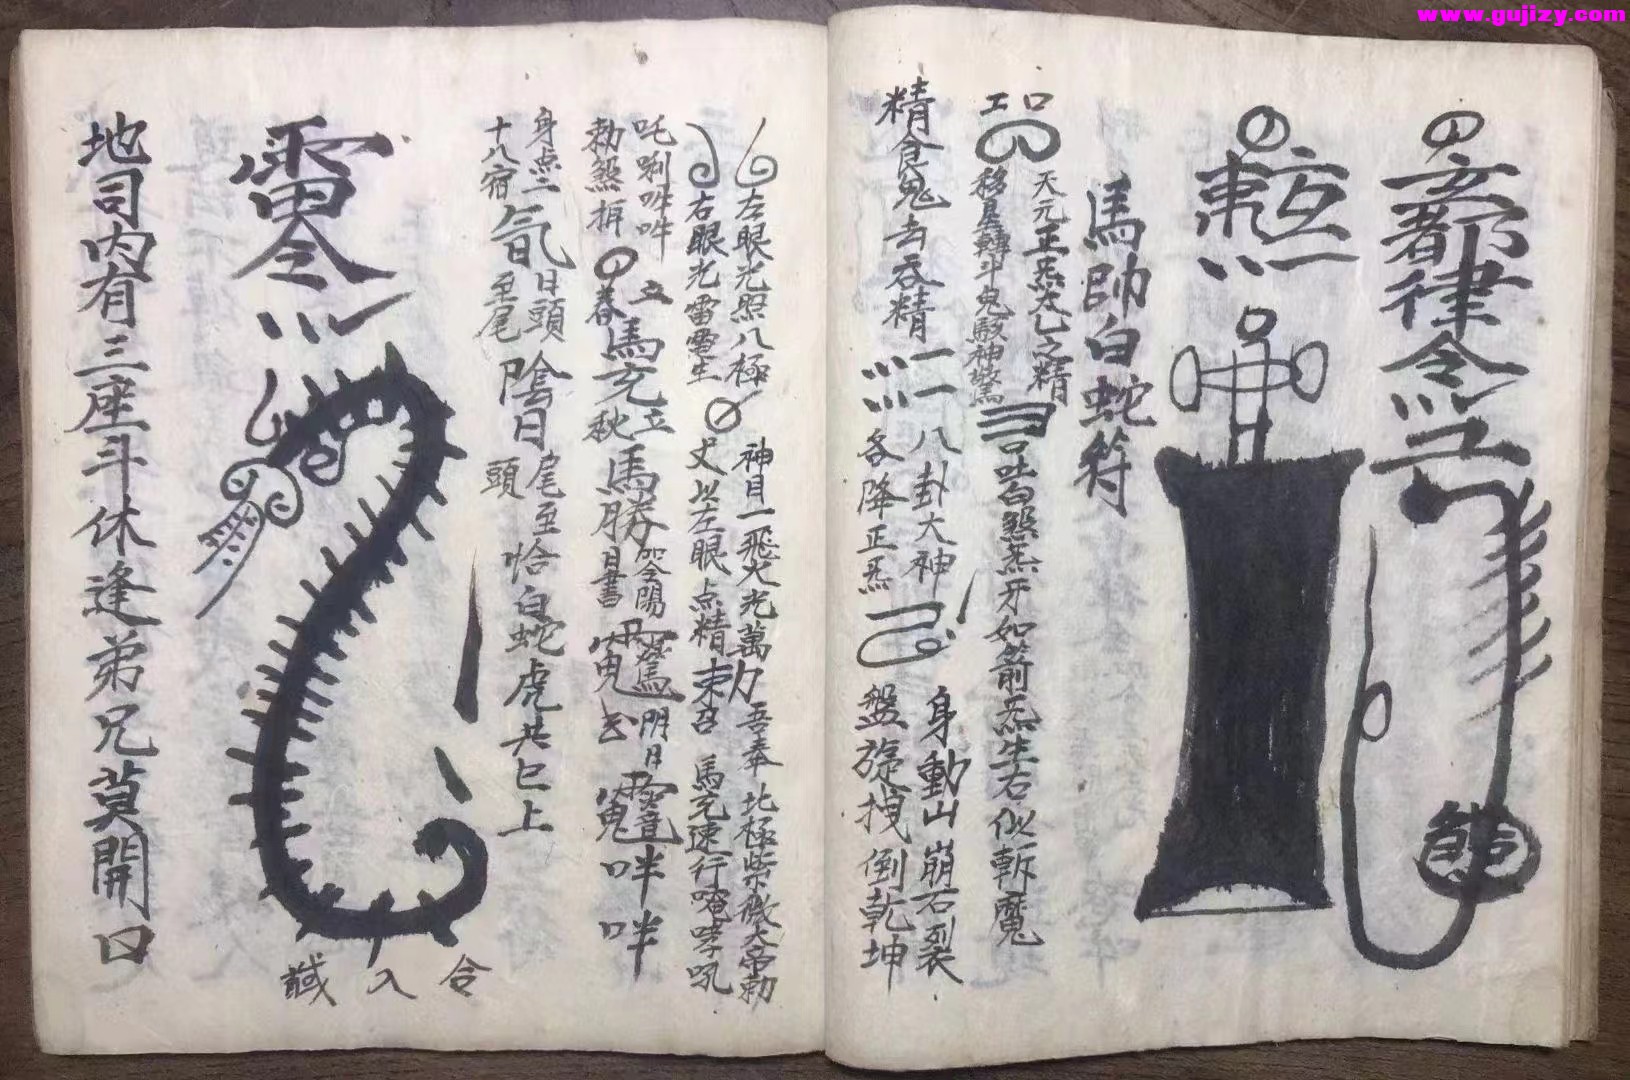 www.gujizy.com
玄都律令
馬帥白蛇符
口
天元正炁太乙之精
工
移星轉斗鬼駭神驚
口吐白煞炁牙如箭炁生右似斬魔
八卦大神
身動山崩石裂
精食鬼去吞精
各降正炁
盤旋拽倒乾坤
左眼光照八極
神目一飛火光萬力
吾奉北極紫微大帝勅
右眼光雷電生
丈以左眼点精
束召
馬充速行唵哮吼
吒唎吽吽
立
勅煞
春馬充立秋馬勝
咒令陽
日書
閉日
咩咩
身点二十八宿
日頭至尾
陰日
尾至頭
恰白蛇虎共七上
令入識
地司內有三座斗休逢弟兄莫開口